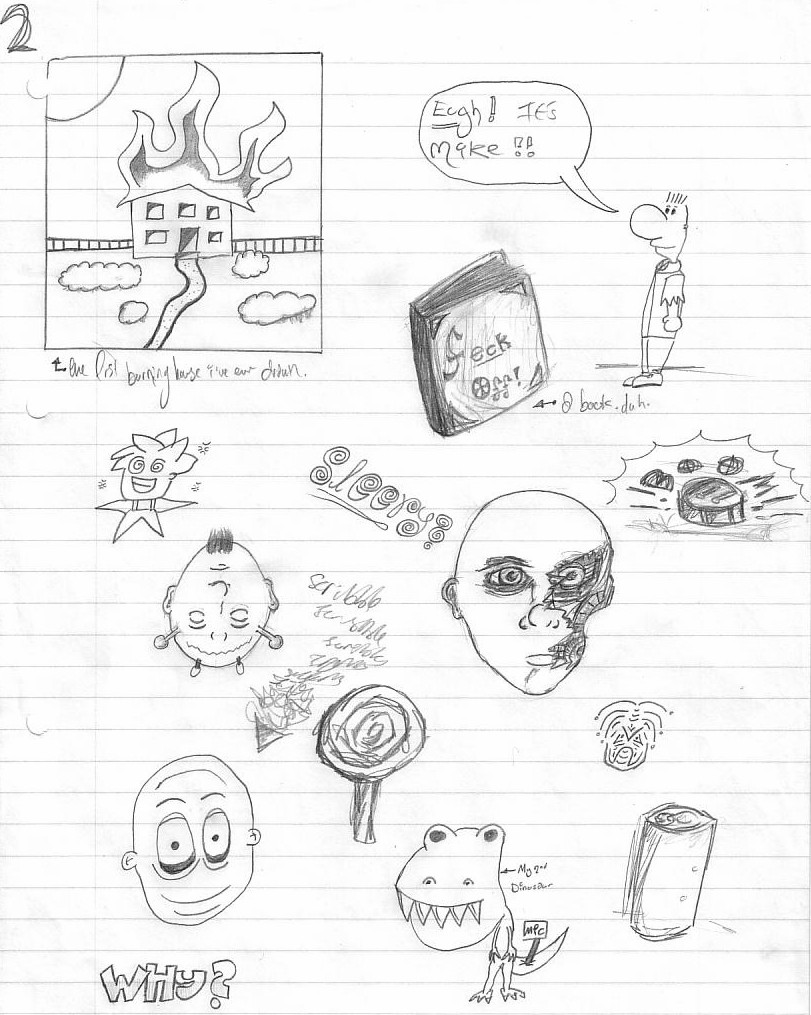 2
Eugh! It's
Mike!!
the first burning house i've ever drawn.
Geck
Off!
a book. duh.
Sleepy?
scribble
scribble
scribble
My 2nd
Dinosaur
MPC
WHY?